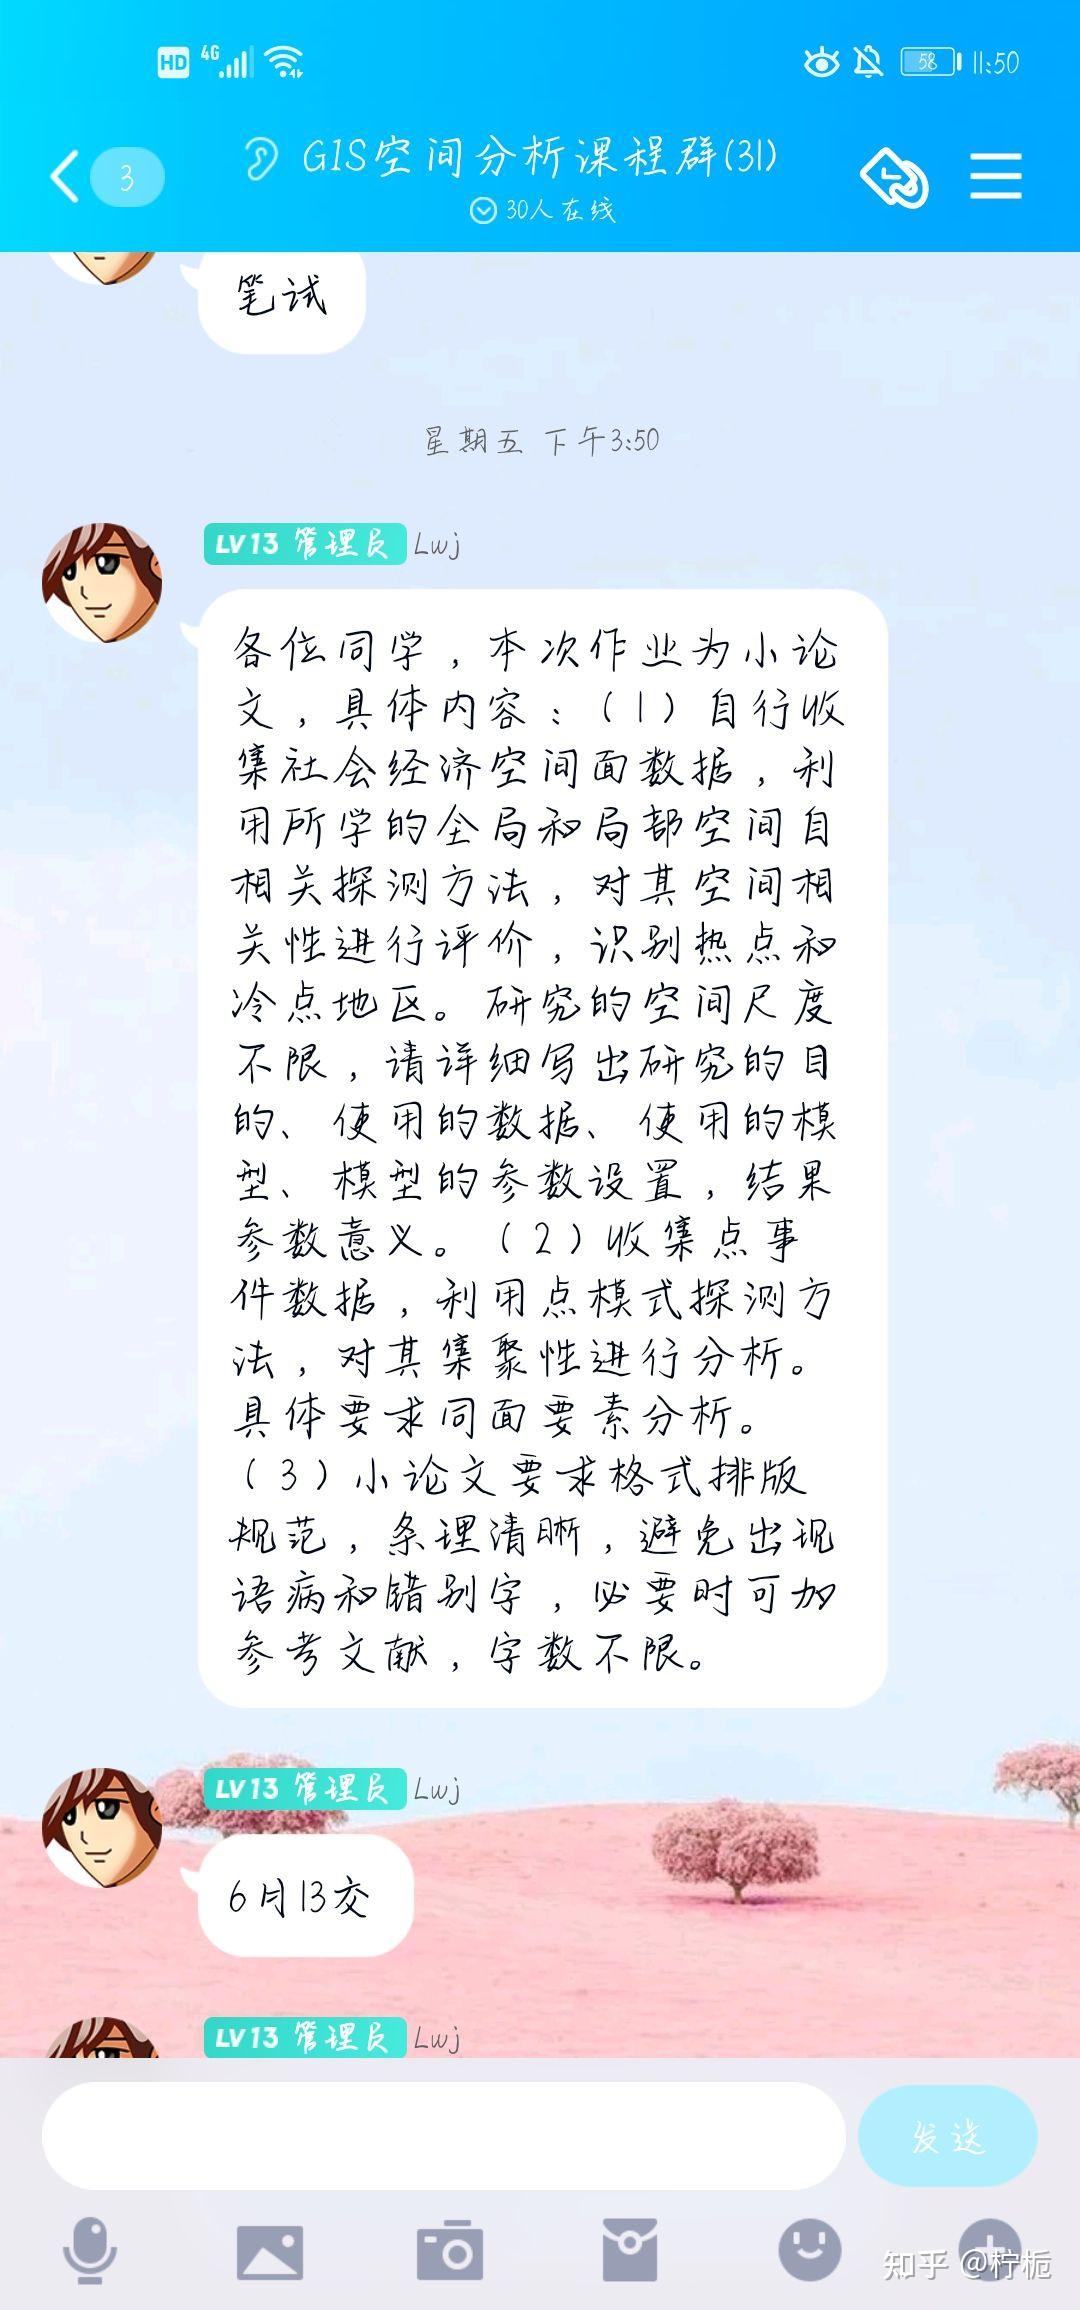 HD 4G 58 11:50
3 GIS空间分析课程群(31)
30人在线
笔试
星期五 下午3:50
LV13 管理员 Lwj
各位同学，本次作业为小论
文，具体内容：（1）自行收
集社会经济空间面数据，利
用所学的全局和局部空间自
相关探测方法，对其空间相
关性进行评价，识别热点和
冷点地区。研究的空间尺度
不限，请详细写出研究的目
的、使用的数据、使用的模
型、模型的参数设置，结果
参数意义。（2）收集点事
件数据，利用点模式探测方
法，对其集聚性进行分析。
具体要求同面要素分析。
（3）小论文要求格式排版
规范，条理清晰，避免出现
语病和错别字，必要时可加
参考文献，字数不限。
LV13 管理员 Lwj
6月13交
LV13 管理员 Lwj
发送
知乎 @柠栀